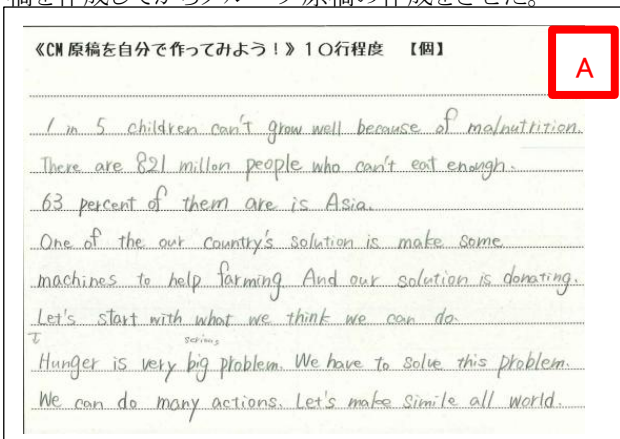 稿を作成してからグループ原稿の作成をさせた。
《CM原稿を自分で作ってみよう！》１０行程度 【個】
A
1 in 5 children can't grow well because of malnutrition.
There are 821 millon people who can't eat enough.
63 percent of them are is Asia.
One of the our country's solution is make some
machines to help farming. And our solution is donating.
Let's start with what we think we can do.
serious
Hunger is very big problem. We have to solve this problem.
We can do many actions. Let's make simile all world.